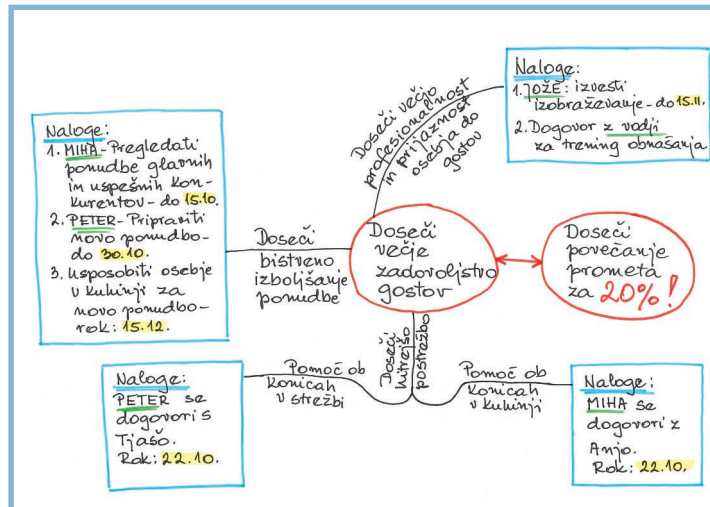 Naloge:
1. MIHA - Pregledati
ponudbe glavnih
in uspešnih kon-
kurentov - do 15.10.
2. PETER - Pripraviti
novo ponudbo -
do 30.10.
3. Usposobiti osebje
v kuhinji za
novo ponudbo -
rok: 15.12.
Doseči
bistveno
izboljšanje
ponudbe
Doseči večjo
profesionalnost
in prijaznost
osebja do
gostov
Naloge:
1. JOŽE: izvesti
izobraževanje - do 15.11.
2. Dogovor z vodji
za trening obnašanja
Doseči
večje
zadovoljstvo
gostov
Doseči
povečanje
prometa
za 20%!
Doseči
hitrejšo
postrežbo
Pomoč ob
konicah
v strežbi
Naloge:
PETER se
dogovori s
Tjašo.
Rok: 22.10.
Pomoč ob
konicah
v kuhinji
Naloge:
MIHA se
dogovori z
Anjo.
Rok: 22.10.